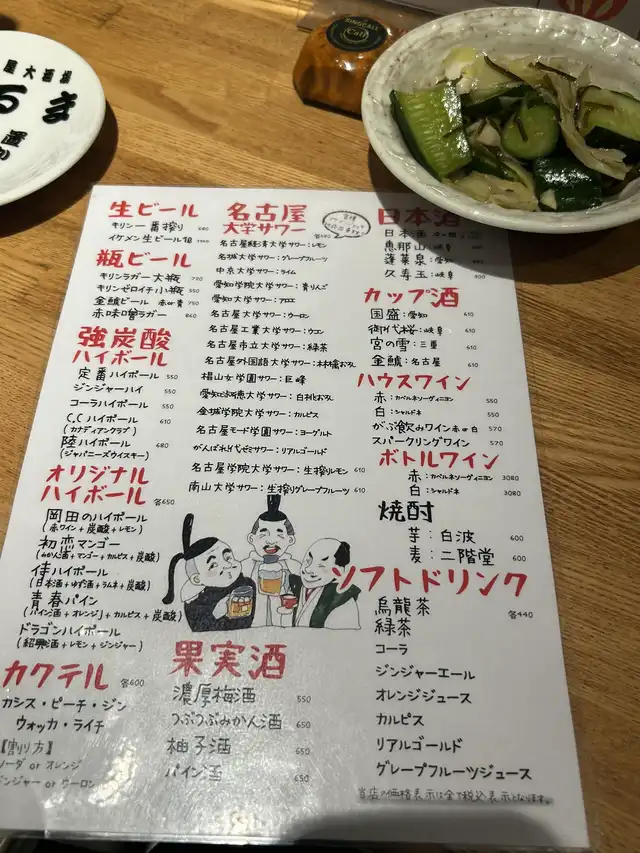 大酒場
るま
KINGCALL
Call
生ビール
キリン一番搾り 680
イケメン生ビール
瓶ビール
キリンラガー大瓶 780
キリンゼロイチ小瓶 550
金鯱ビール 赤or青 750
赤味噌ラガー 860
強炭酸
ハイボール
定番ハイボール 550
ジンジャーハイ 550
コーラハイボール 550
C.Cハイボール 610
(カナディアンクラブ)
陸ハイボール 680
(ジャパニーズウイスキー)
オリジナル
ハイボール 各650
岡田のハイボール
(赤ワイン+炭酸+レモン)
初恋マンゴー
(みかん酒+マンゴー+カルピス+炭酸)
侍ハイボール
(日本酒+ゆず酒+ラムネ+炭酸)
青春パイン
(パイン酒+オレンジ+カルピス+炭酸)
ドラゴンハイボール
(紹興酒+レモン+ジンジャー)
カクテル 各600
カシス・ピーチ・ジン
ウォッカ・ライチ
【割り方】
ソーダ or オレンジ
ジンジャー or ウーロン
名古屋
大学サワー
名古屋経済大学サワー:レモン
名城大学サワー:グレープフルーツ
中京大学サワー:ライム
愛知学院大学サワー:青りんご
愛知大学サワー:アロエ
名古屋大学サワー:ウーロン
名古屋工業大学サワー:ウコン
名古屋市立大学サワー:緑茶
名古屋外国語大学サワー:
椙山女学園サワー:巨峰
愛知淑徳大学サワー:白桃
金城学院大学サワー:カルピス
名古屋モード学園サワー:ヨーグルト
がんばれ代ゼミサワー:リアルゴールド
名古屋学院大学サワー:生搾りレモン 610
南山大学サワー:生搾りグレープフルーツ 610
果実酒
濃厚梅酒 550
つぶつぶみかん酒 650
柚子酒 650
パイン酒 650
日本酒
日本酒
恵那山:岐阜
蓬莱泉:愛知
久寿玉:岐阜 800
カップ酒
国盛:愛知 610
御代桜:岐阜 610
宮の雪:三重 610
金鯱:名古屋 610
ハウスワイン
赤:カベルネソーヴィニヨン 550
白:シャルドネ 550
がぶ飲みワイン赤or白 570
スパークリングワイン 570
ボトルワイン
赤:カベルネソーヴィニヨン 3080
白:シャルドネ 3080
焼酎
芋:白波 600
麦:二階堂 600
ソフトドリンク
烏龍茶 各440
緑茶
コーラ
ジンジャーエール
オレンジジュース
カルピス
リアルゴールド
グレープフルーツジュース
当店の価格表示は全て税込表示となります。